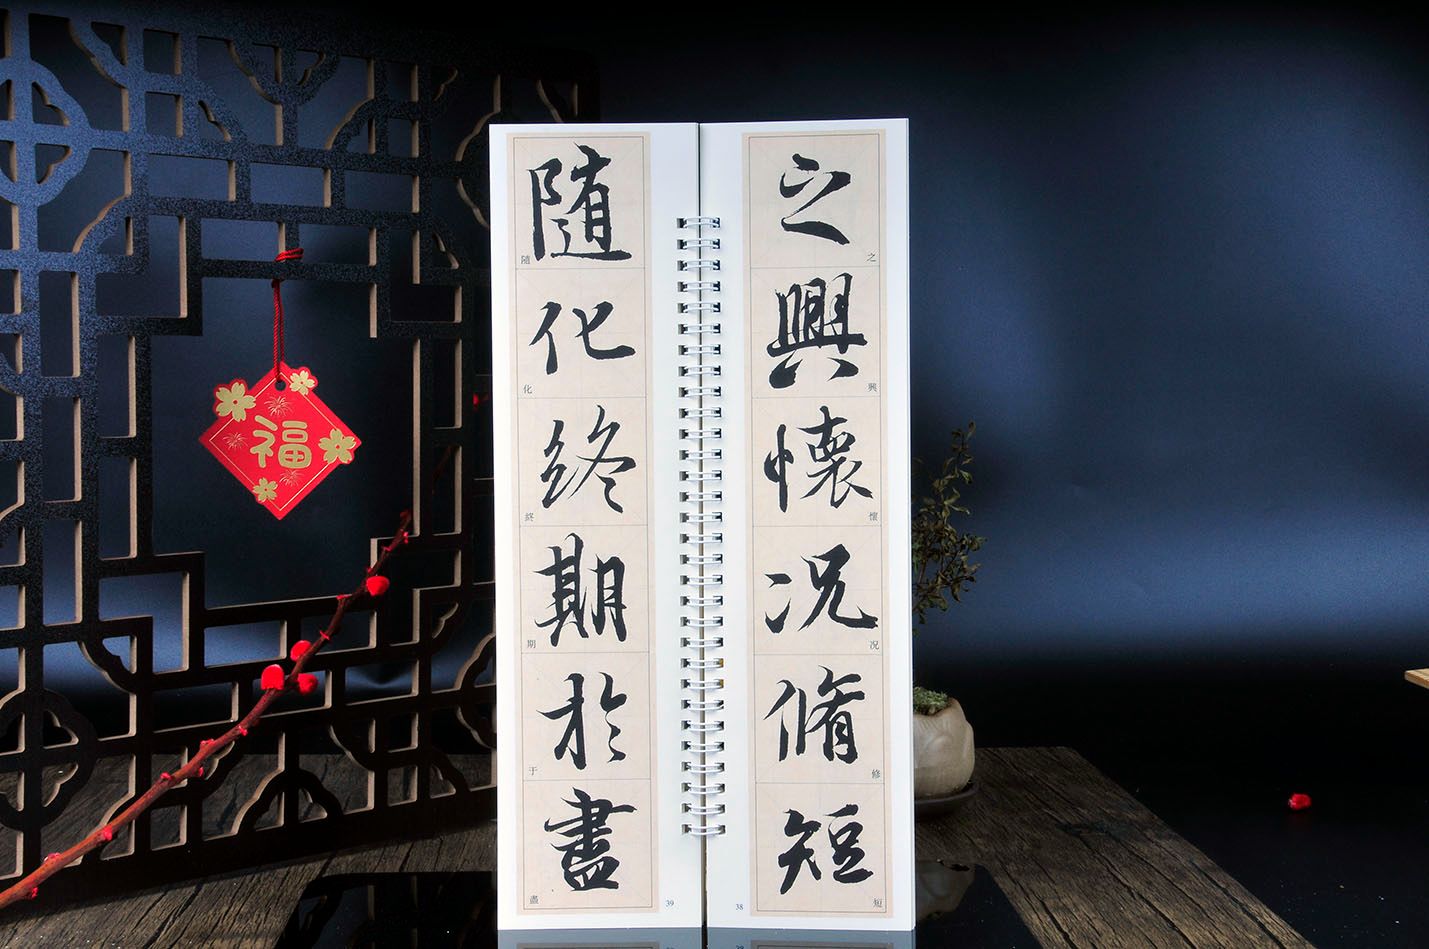 之興懷况脩短
之
興
懷
况
修
短
38
隨化終期於盡
隨
化
終
期
于
盡
39
福